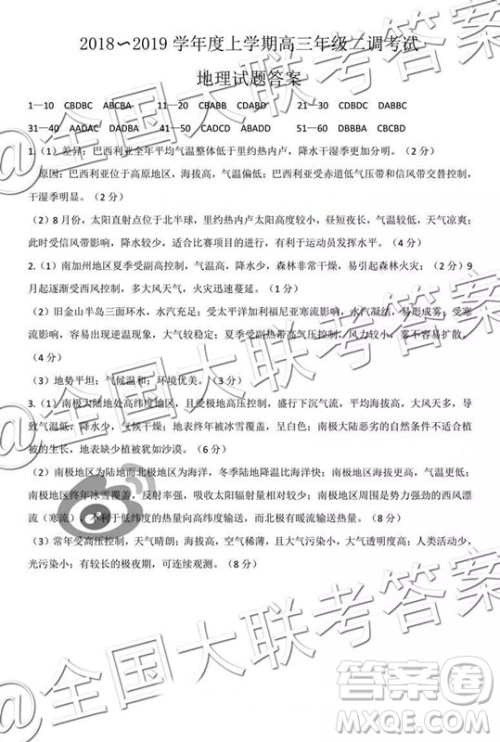 2018～2019 学年度上学期高三年级二调考试
地理试题答案
1—10 CBDBC ABCBA 11—20 CBABB CDABD 21—30 CDCBD DABBC
31—40 AADAC DADBA 41—50 CADCD ABADD 51—60 DBBBA CBCBD
1.（1）差异：巴西利亚全年平均气温整体低于里约热内卢，降水干湿季更加分明。（2 分）
原因：巴西利亚位于高原地区，海拔高，气温低；巴西利亚受赤道低气压带和信风带交替控制，
干湿季明显。（2 分）
（2）8 月份，太阳直射点位于北半球，里约热内卢太阳高度较小，昼短夜长，气温低，天气凉爽；
此时受信风带影响，降水少，适合比赛项目的进行以及运动员发挥水平。（4 分）
2.（1）南加州地区夏季受副高控制，气温高，降水少，森林非常干燥，易引起森林火灾；（2 分）9
月起逐渐受西风控制，大风天气多，火灾迅速蔓延。（2 分）
（2）旧金山半岛三面环水，水汽充足；受太平洋加利福尼亚寒流影响，水汽凝结，易形成雾；受寒流
影响，容易出现逆温现象，大气较为稳定；夏季受副热带高压控制，风力较小，雾不容易扩散。
（4 分）
（3）地势平坦；气候温和；环境优美。（3 分）
3.（1）南极大陆处高纬度地区，且受极地高压控制，盛行下沉气流，平均海拔高，大风天气多，导
致气温低，降水少，空气干燥；南极大陆地表终年被冰雪覆盖，南极大陆恶劣的自然条件不适合植
被的生长，地表缺少植被犹如沙漠。（6 分）
（2）南极地区为陆地而北极地区为海洋，冬季陆地降温比海洋快；南极地区海拔更高，气温更低；
南极地区终年冰雪覆盖，反射率大，吸收太阳辐射量小于北极地区；南极地区周围是势力强劲的西风漂
流（寒流），不利于低纬热量向高纬度输送，而北极有暖流向高纬度输送热量。（8 分）
（3）常年受高压控制，天气晴朗；海拔高，空气稀薄，且大气污染小，大气透明度高；人类活动少，
光污染小；有较长的极夜期，可连续观测。（8 分）
@全国大联考答案
@全国大联考答案
@全国大联考答案
答案圈
MXQE.COM